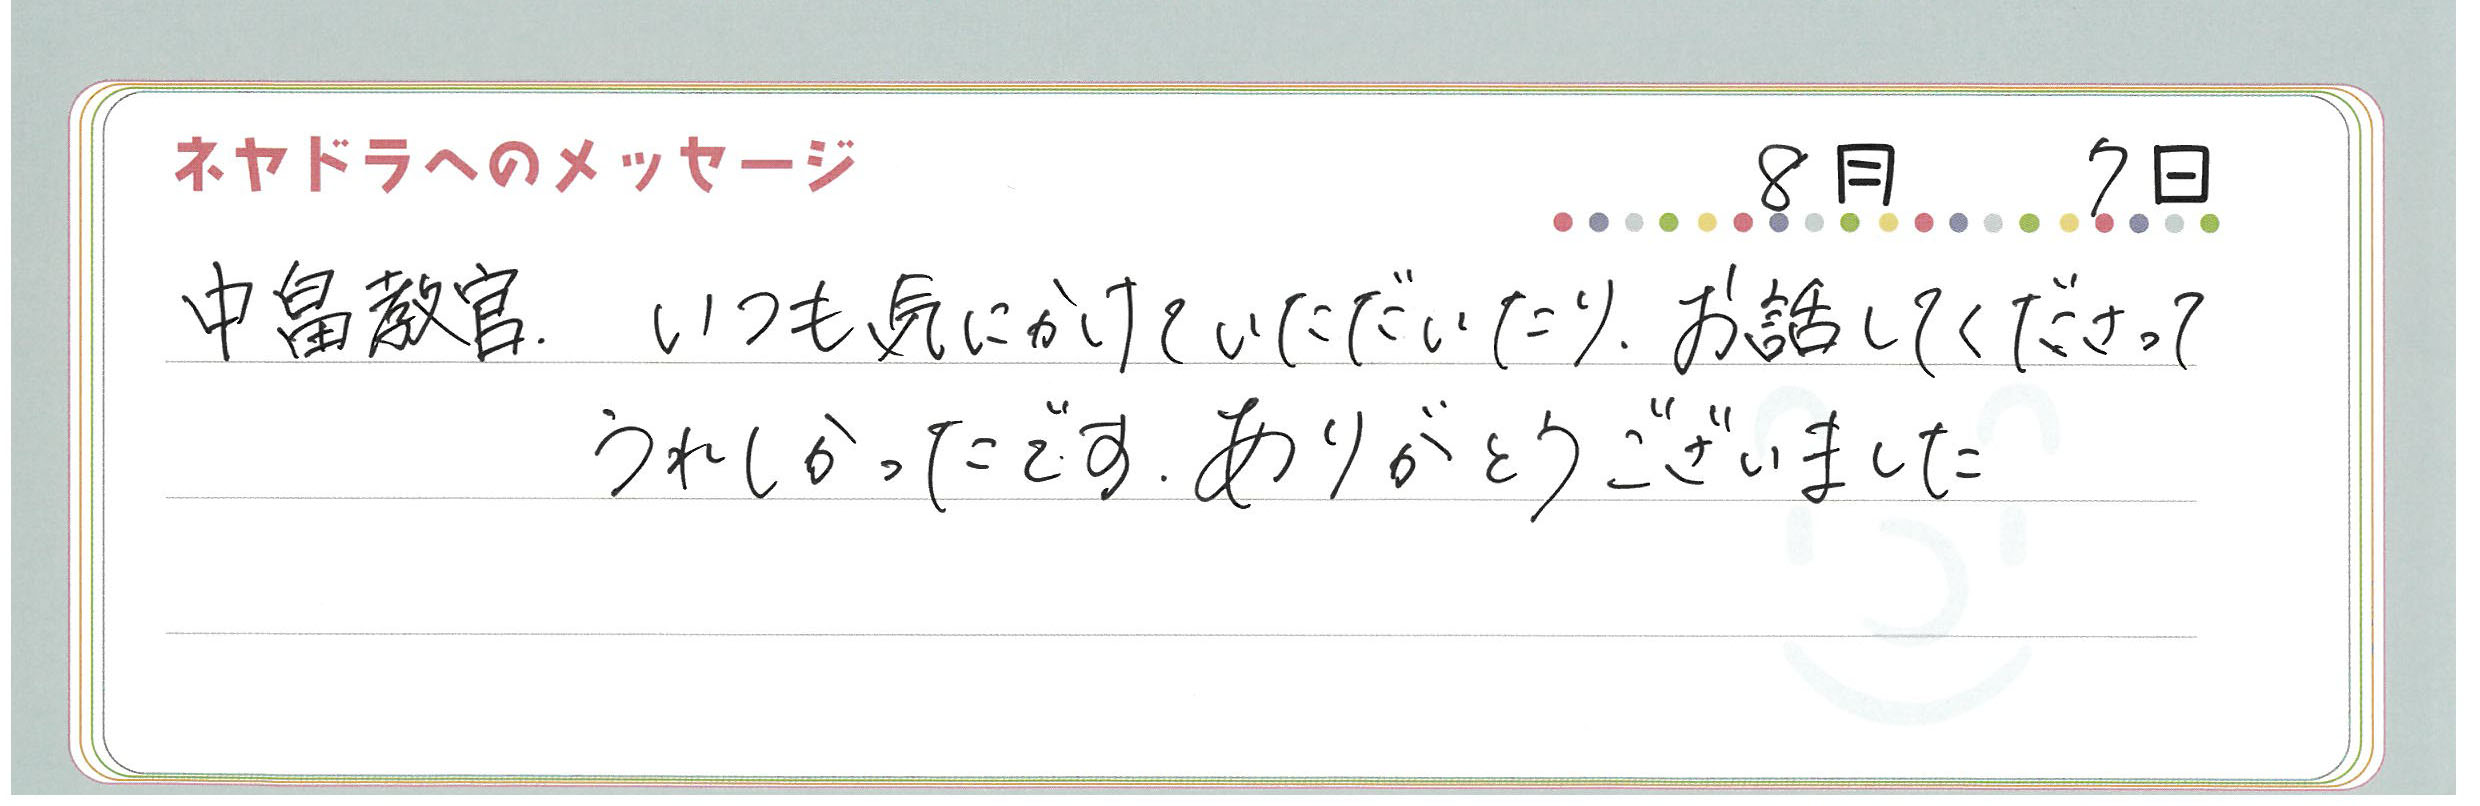 ネヤドラへのメッセージ
8月 7日
中畠教官. いつも気にかけていただいたり. お話してくださって
うれしかったです. ありがとうございました